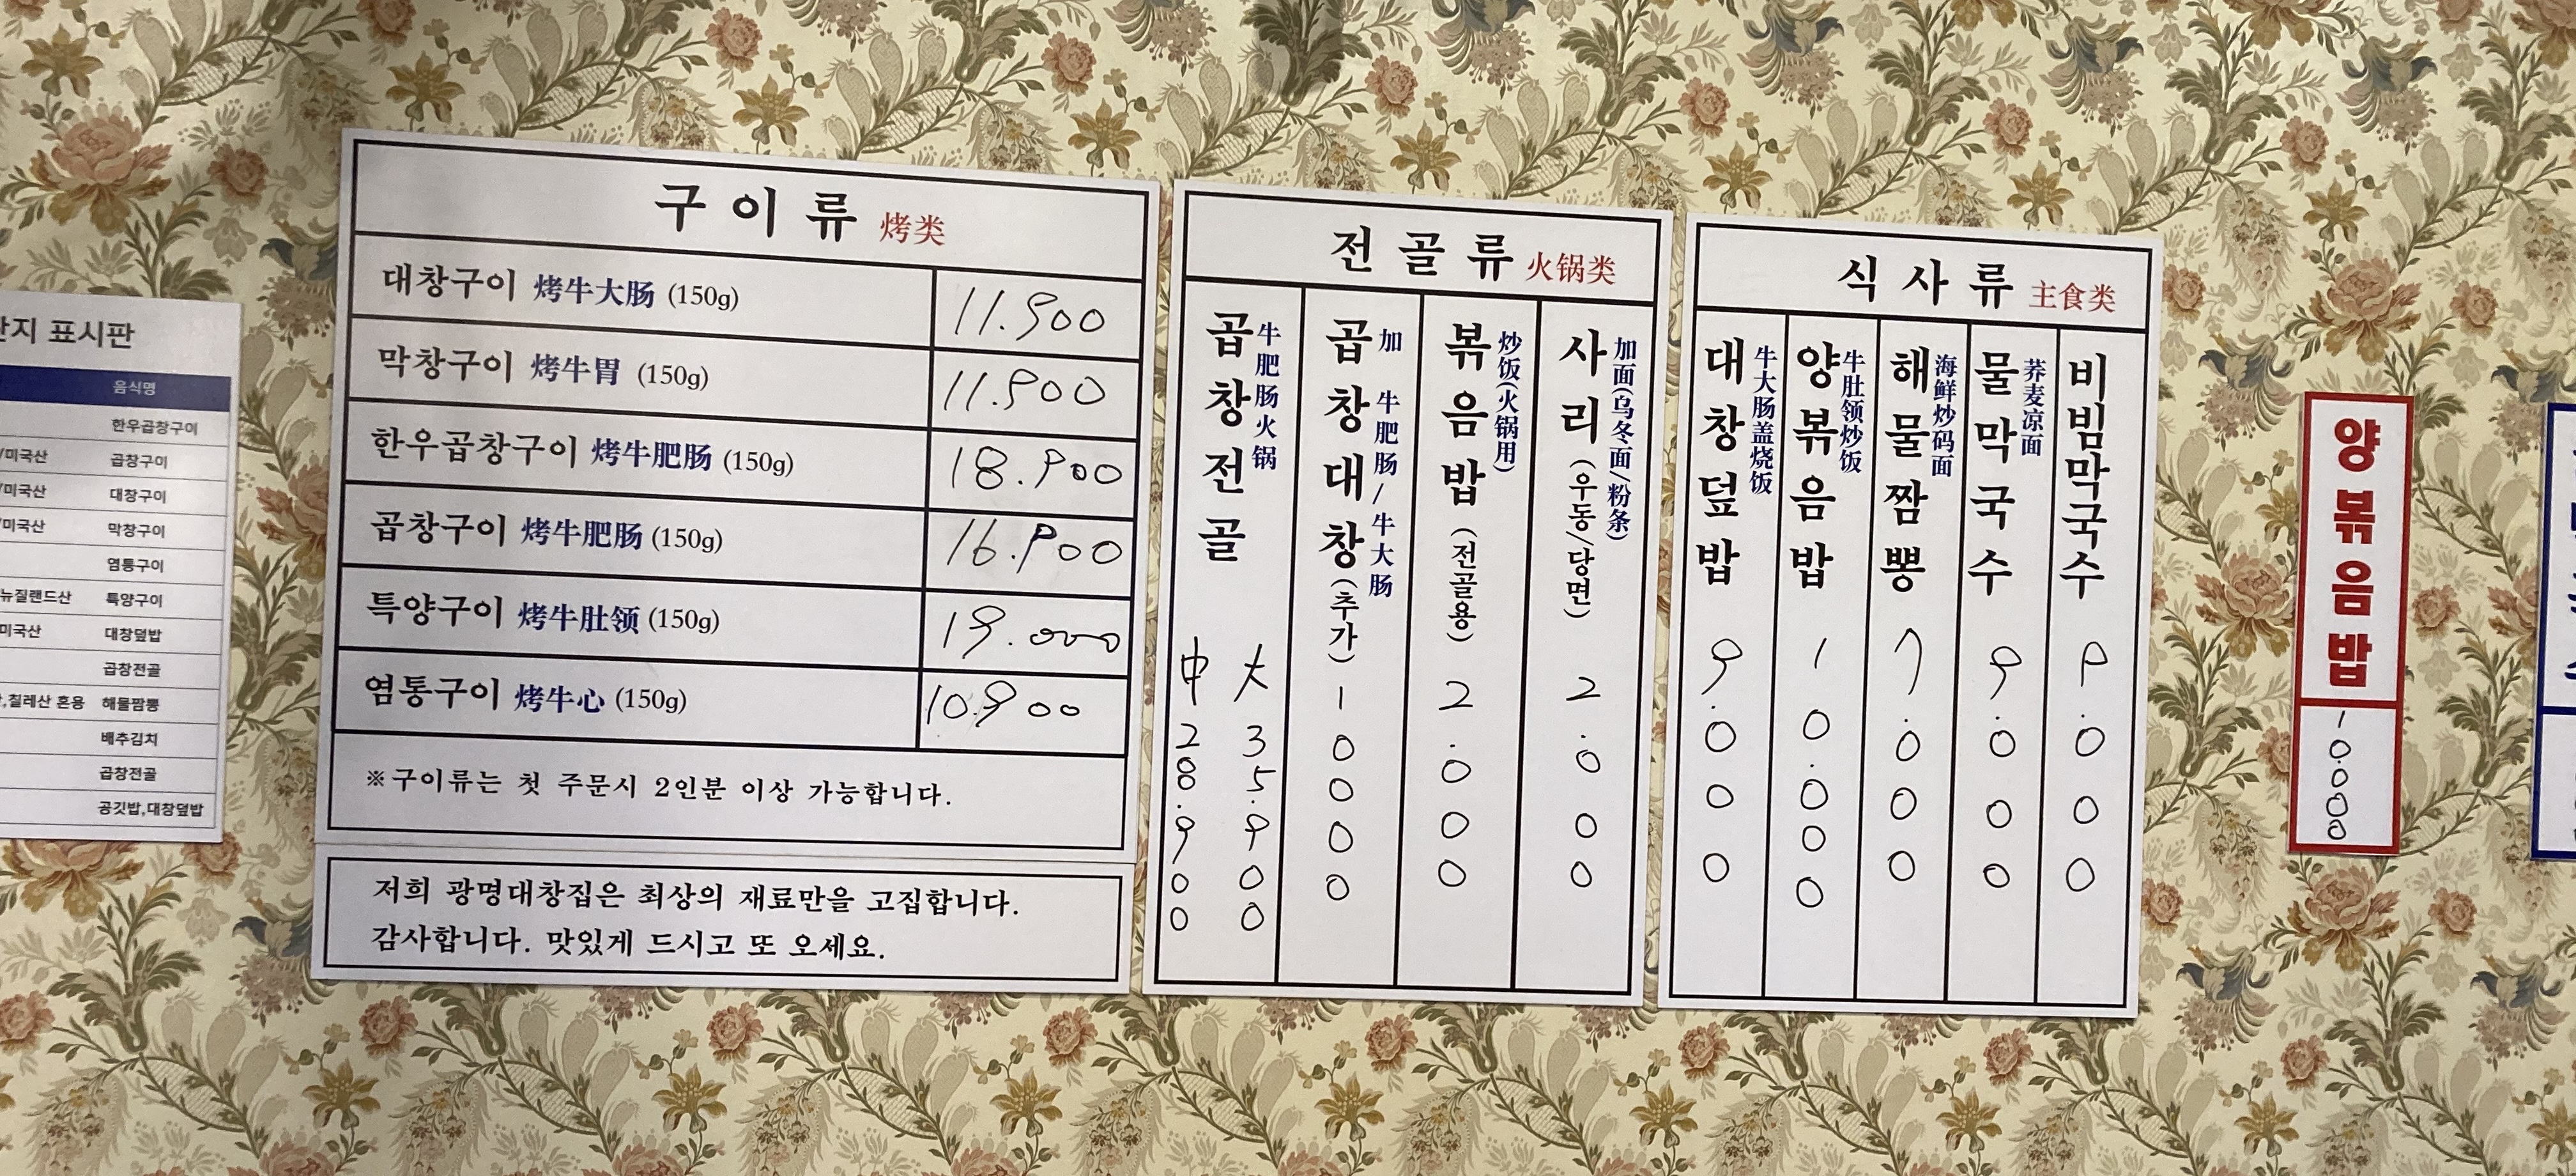 단지 표시판
음식명
한우곱창구이
/미국산 곱창구이
/미국산 대창구이
/미국산 막창구이
염통구이
뉴질랜드산 특양구이
미국산 대창덮밥
곱창전골
칠레산 혼용 해물짬뽕
배추김치
곱창전골
공깃밥,대창덮밥
구이류 烤类
대창구이 烤牛大肠 (150g) 11.900
막창구이 烤牛胃 (150g) 11.900
한우곱창구이 烤牛肥肠 (150g) 18.900
곱창구이 烤牛肥肠 (150g) 16.900
특양구이 烤牛肚领 (150g) 19.000
염통구이 烤牛心 (150g) 10.900
※구이류는 첫 주문시 2인분 이상 가능합니다.
저희 광명대창집은 최상의 재료만을 고집합니다.
감사합니다. 맛있게 드시고 또 오세요.
전골류 火锅类
곱창전골 牛肥肠火锅
中 28.900
大 35.900
곱창대창(추가) 加 牛肥肠/牛大肠 10000
볶음밥(전골용) 炒饭(火锅用) 2.000
사리(우동/당면) 加面(乌冬面/粉条) 2.000
식사류 主食类
대창덮밥 牛大肠盖烧饭 9.000
양볶음밥 牛肚领炒饭 10.000
해물짬뽕 海鲜炒码面 7.000
물막국수 荞麦凉面 9.000
비빔막국수 9.000
양볶음밥
10.000